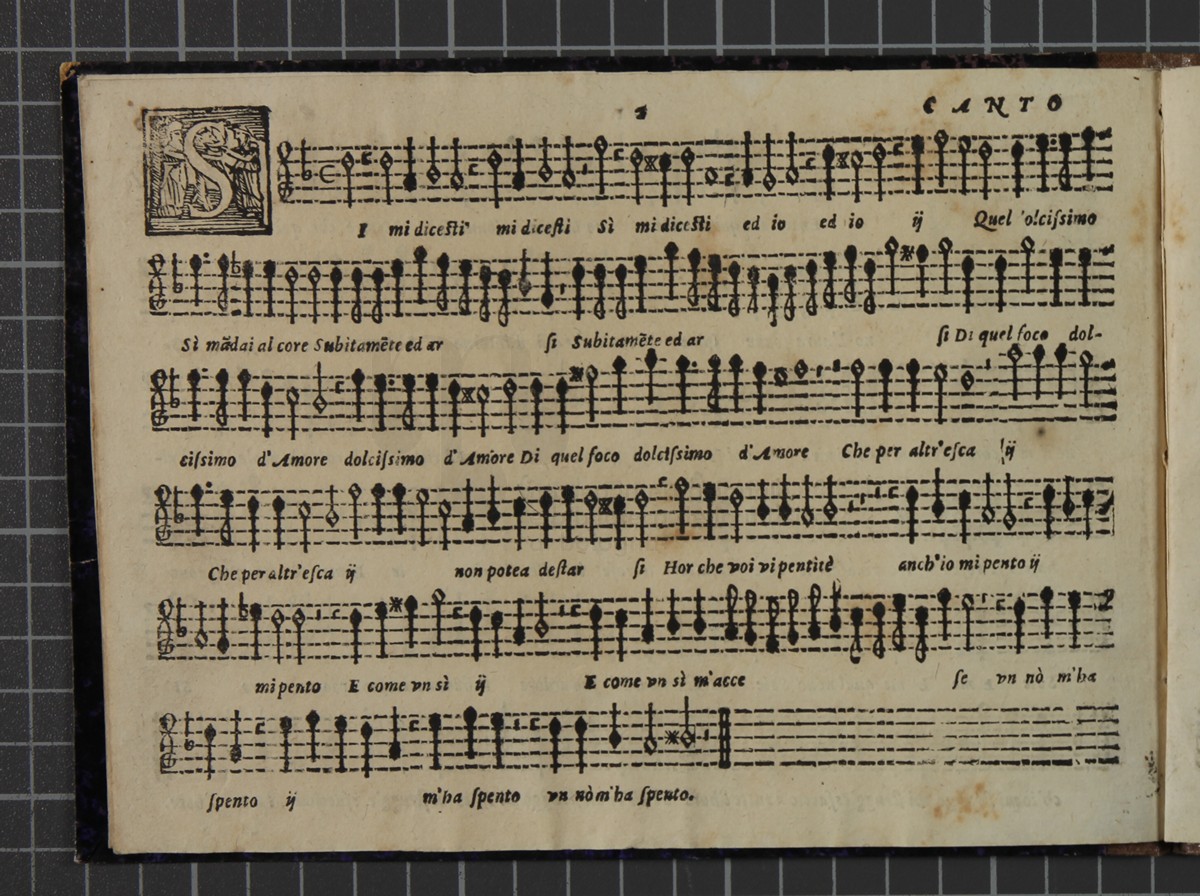 2
CANTO
SI mi dicesti mi dicesti Sì mi dicesti ed io ed io ij Quel 'olcissimo
Sì mãdai al core Subitamẽte ed ar si Subitamẽte ed ar si Di quel foco dol-
cissimo d'Amore dolcissimo d'Amore Di quel foco dolcissimo d'Amore Che per altr'esca ij
Che per altr'esca ij non potea destar si Hor che voi vi pentitè anch'io mi pento ij
mi pento E come vn sì ij E come vn sì m'acce se vn nò m'ha
spento ij m'ha spento vn nò m'ha spento.